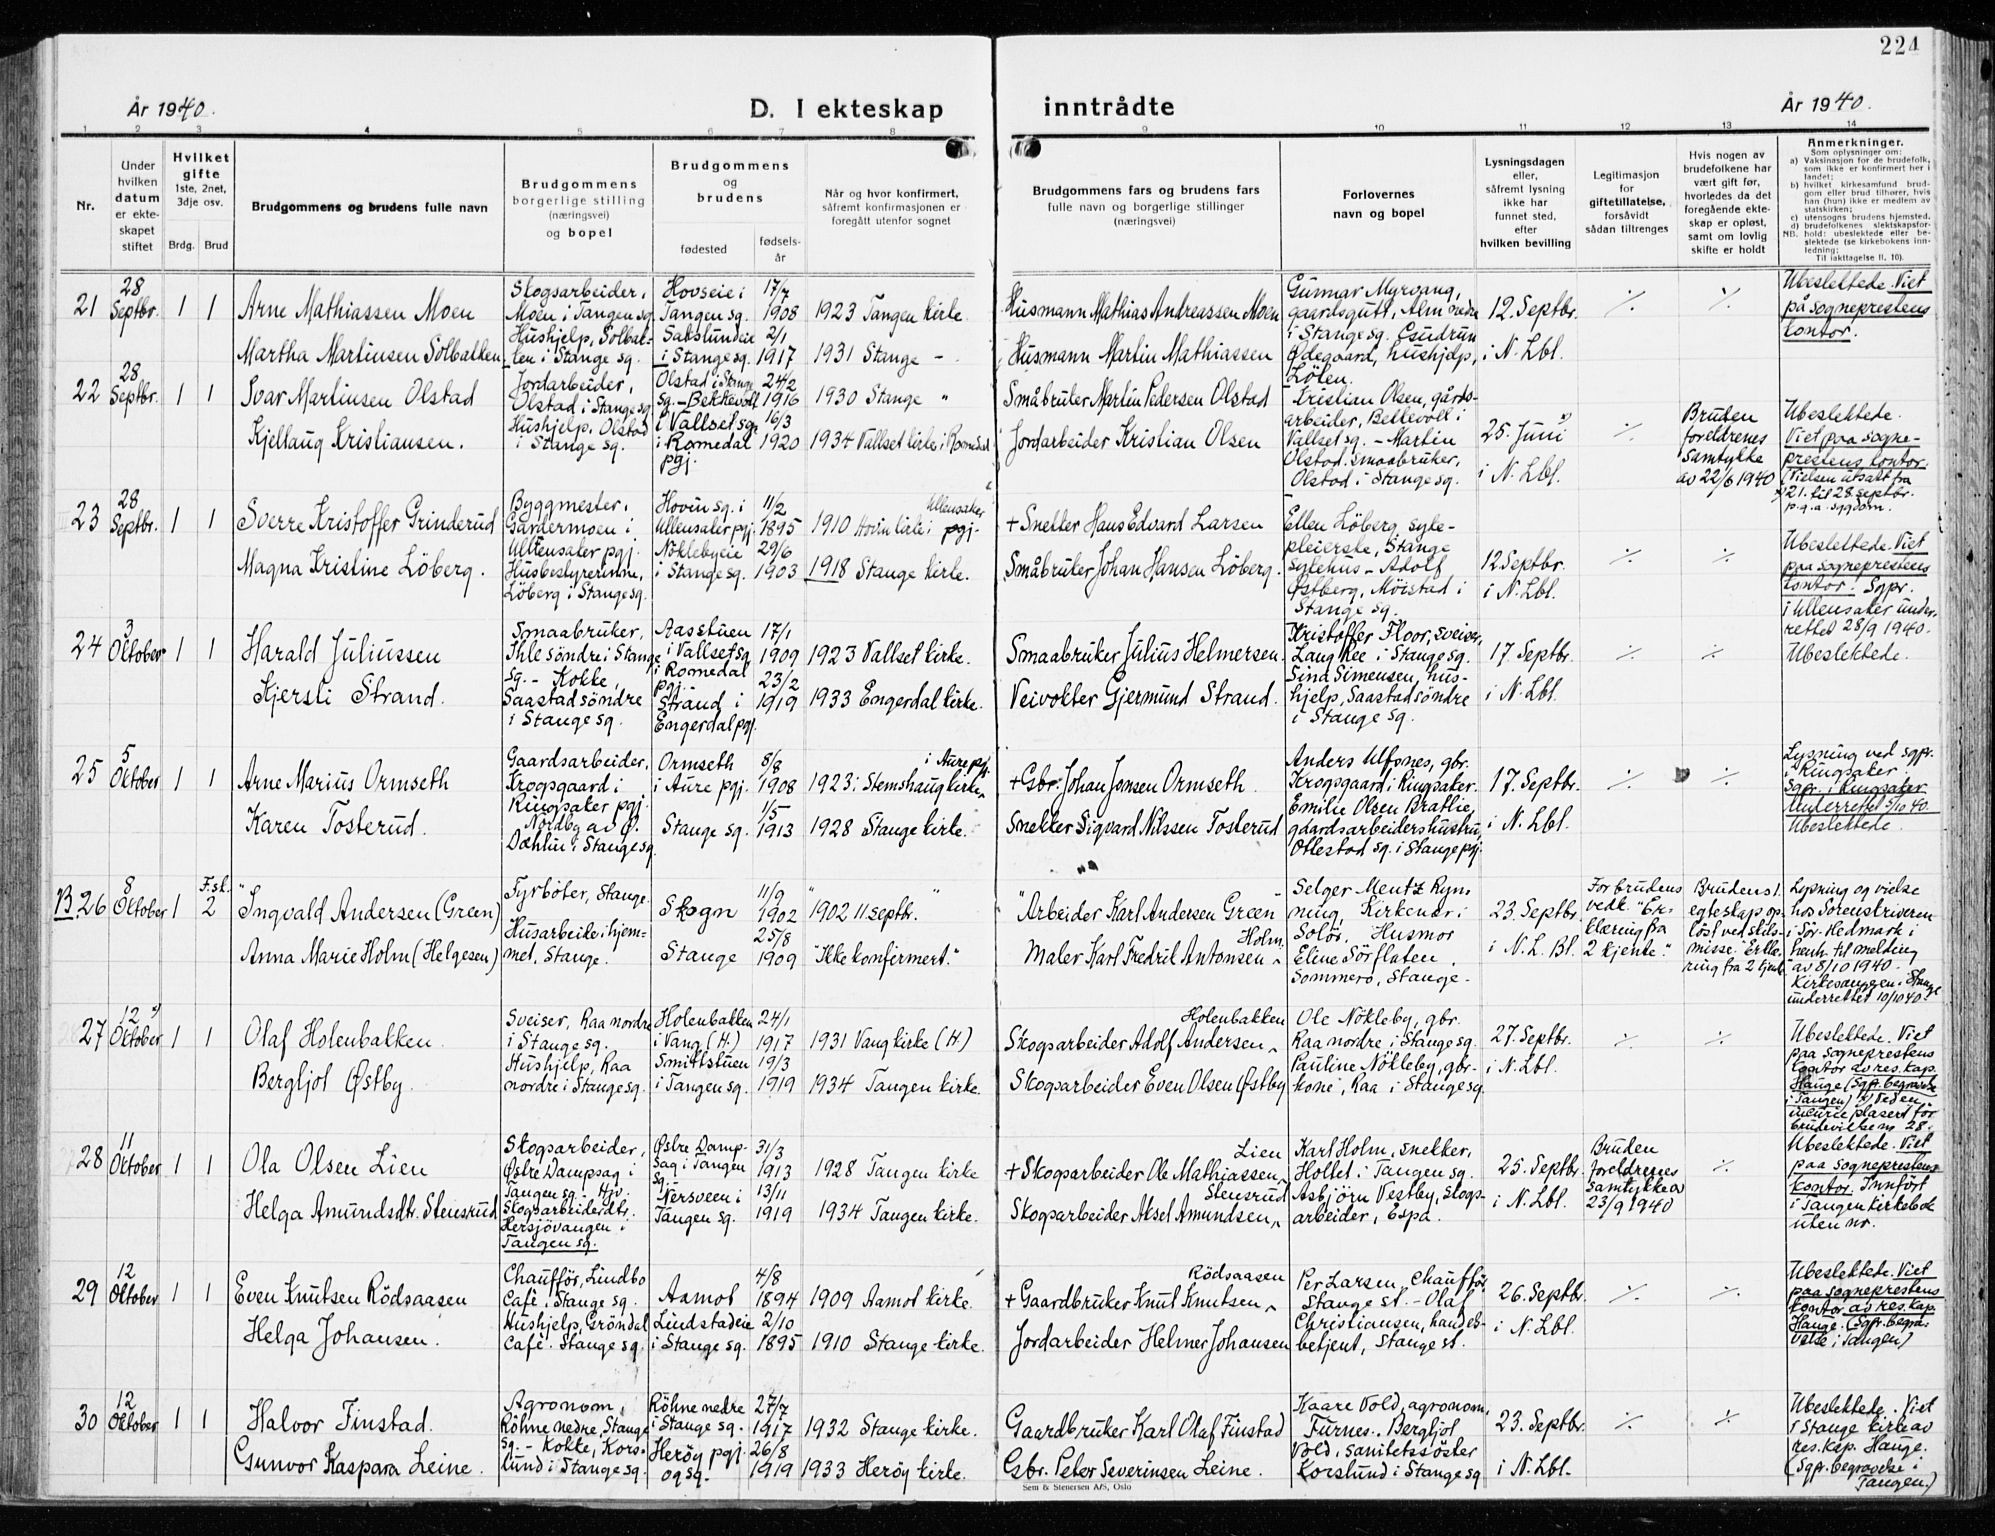 224
År 1940.
D. I ekteskap inntrådte
År 1940.
1 2 3 4 5 6 7 8 9 10 11 12 13 14
Nr.
Under hvilken datum er ekteskapet stiftet
Hvilket gifte
1ste, 2net, 3dje osv.
Brdg. Brud
Brudgommens og brudens fulle navn
Brudgommens borgerlige stilling (næringsvei) og bopel
Brudgommens og brudens
fødested
fødselsår
Når og hvor konfirmert, såfremt konfirmasjonen er foregått utenfor sognet
Brudgommens fars og brudens fars fulle navn og borgerlige stillinger (næringsvei)
Forlovernes navn og bopel
Lysningsdagen eller, såfremt lysning ikke har funnet sted, efter hvilken bevilling
Legitimasjon for giftetillatelse, forsåvidt sådan tiltrenges
Hvis nogen av brudefolkene har vært gift før, hvorledes da det foregående ekteskap er opløst, samt om lovlig skifte er holdt
Anmerkninger.
Som oplysninger om:
a) Vaksinasjon for de brudefolk, som ikke er konfirmert her i landet;
b) hvilket kirkesamfund brudgom eller brud tilhører, hvis han (hun) ikke er medlem av statskirken;
c) utensogns brudens hjemsted.
d) brudefolkenes slektskapsforhold: ubeslektede eller beslektede (se kirkebokens innledning;
NB. Til iakttagelse II. 10).
21
28 Septbr.
1 1
Arne Mathiassen Moen
Martha Martinsen Solbakken
Skogsarbeider, Moen i Tangen sg.
Hushjelp, Solbakken i Stange sg.
Hovseie i Tangen sg. 17/7 1908
Sakslundeie i Stange sg. 2/1 1917
1923 Tangen kirke.
1931 Stange -
Husmann Mathias Andreassen Moen
Husmann Martin Mathiassen
Gunnar Myrvang, gaardsgutt, Alm i Stange sg. Gudrun Ødegaard, hushjelp, Löten.
12. Septbr. i N. Lbl.
./. ./.
Ubeslektede. Viet på sogneprestens kontor.
22
28 Septbr.
1 1
Ivar Martinsen Olstad
Kjellaug Kristiansen.
Jordarbeider, Olstad i Stange sg.
Hushjelp, Olstad i Stange sg.
Olstad i Stange sg. - 24/2 1916
Bekkevoll i Vallset sg. i Romedal pgj. 16/3 1920
1930 Stange "
1934 Vallset kirke i Romedal
Småbruker Martin Pedersen Olstad
Jordarbeider Kristian Olsen
Kristian Olsen, gårdsarbeider, Bekkevoll i Vallset sg. - Martin Olstad, smaabruker, Olstad i Stange sg.
25. Juni x) i N. Lbl.
./.
Bruden foreldrenes samtykke av 22/6 1940
Ubeslektede. Viet paa sogneprestens kontor. (Vielsen utsatt fra x) 21. til 28. septbr. p.g.a. sygdom.
23
28 Septbr.
1 1
Sverre Kristoffer Grinderud
Magna Kristine Löberg.
Byggmester, Gardermoen i Ullensaker pgj.
Husbestyrerinne, Löberg i Stange sg.
Hovin sg. i Ullensaker pgj. 11/2 1895
Nöklebyeie i Stange sg. 29/6 1903
1910 Hovin kirke i Ullensaker pgj.
1918 Stange kirke.
+ Snekker Hans Edvard Larsen
Småbruker Johan Hansen Löberg.
Ellen Löberg, sykepleierske, Stange sykehus - Adolf Østberg, Möistad i Stange sg.
12 Septbr. i N. Lbl.
./. ./.
Ubeslektede. Viet paa sogneprestens kontor. Sgpr. i Ullensaker underrettet 28/9 1940.
24
3 Oktober
1 1
Harald Juliussen
Kjersti Strand.
Smaabruker, Ihle söndre i Stange sg. - Kokke, Saastad söndre i Stange sg.
Aasstuen i Vallset sg. i Romedal pgj. - 17/1 1909
Strand i Engerdal pgj. 23/2 1919
1923 Vallset kirke.
1933 Engerdal kirke.
Smaabruker Julius Helmersen.
Veivokter Gjermund Strand.
Kristoffer Floor, sveiser, Lang Ree i Stange sg. Sina Simensen, hushjelp, Saastad söndre i Stange sg.
17. Septbr. i N. Lbl.
./. ./.
Ubeslektede.
25
5 Oktober
1 1
Arne Marius Ormseth
Karen Tosterud.
Gaardsarbeider, Krogsgaard i Ringsaker pgj.
Nordby av Ø. Dæhlin i Stange sg.
Ormseth i Aure pgj. 8/8 1908
Stange sg. 1/5 1913
1923 i Stemshaug kirke i Aure pgj.
1928 Stange kirke.
+ Gbr. Johan Jonsen Ormseth.
Snekker Sigvard Nilssen Tosterud
Anders Ulfsnes, gbr. Krogsgaard i Ringsaker. Emilie Olsen Bratlie, gaardsarbeidershustru, Ottestad sg. i Stange pgj.
17. Septbr. i N. Lbl.
./. ./.
Lysning ved sgpr. i Ringsaker. Sgpr. i Ringsaker underrettet 5/10 40. Ubeslektede.
B. 26
8 Oktober
1 F.sk. 2
"Ingvald Andersen (Green)
Anna Marie Holm (Helgesen)
Fyrböter, Stange.
Husarbeide i hjemmet, Stange.
Skogn 11/9 1902
Stange 25/8 1909
" 1902 11 septbr. "
"Ikke konfirmert."
"Arbeider Karl Andersen Green
Maler Karl Fredrik Antonsen Holm.
Selger Mentz Rynning, Kirkenær i Solör. Husmor Eline Sörflaten, Sommero, Stange.
23. Septbr. i N. L. Bl.
For brudens vedk. "Erklæring fra 2 kjente."
Brudens 1. egteskap opløst ved skilsmisse. Erklæring fra 2 kjente
Lysning og vielse hos Sorenskriveren i Sör-Hedmark i henh. til melding av 8/10 1940. Kirkesangeren i Stange underrettet 10/10 40.
27
12 x) Oktober
1 1
Olaf Holenbakken.
Bergljot Østby.
Sveiser, Raa nordre i Stange sg.
Hushjelp, Raa nordre i Stange sg.
Holenbakken i Vang (H.) 24/1 1917
Smittstuen i Tangen sg. 19/3 1919
1931 Vang kirke (H.)
1934 Tangen kirke.
Skogsarbeider Adolf Andersen Holenbakken
Skogsarbeider Even Olsen Østby
Ole Nökleby, gbr. Raa nordre i Stange sg. Pauline Nökleby, gbr. kone, Raa i Stange sg.
27. Septbr. i N. Lbl.
./. ./.
Ubeslektede. Viet paa sogneprestens kontor av res. kap. Hauge (Sgpr. begravelse i Tangen) x) Ved en incurie plasert för brudevielse nr. 28.
28
11 Oktober
1 1
Ola Olsen Lien
Helga Amundsdtr. Stensrud
Skogsarbeider, Østre Dampsag i Tangen sg. Hjv. Skogsarbeiderdtr. Kersjövangen i Tangen sg.
Østre Dampsag i Tangen sg. - 31/3 1913
Nersveen i Tangen sg. 13/11 1919
1928 Tangen kirke
1934 Tangen kirke.
+ Skogsarbeider Ole Mathiassen Lien
Skogsarbeider Aksel Amundsen Stensrud
Karl Holm, snekker, Holtet i Tangen sg. Asbjörn Vestby, skogsarbeider, Espa.
25. Septbr. i N. Lbl.
Bruden foreldrenes samtykke av 23/9 1940
./.
Ubeslektede. Viet paa sogneprestens kontor. Innfört i Tangen kirkebok uten nr.
29
12 Oktober
1 1
Even Knutsen Rödsaasen
Helga Johansen.
Chaufför, Lindbo Café, Stange sg.
Hushjelp, Gröndal Café. Stange sg.
Aamot 4/8 1894
Lindstadeie i Stange sg. 2/10 1895
1909 Aamot kirke.
1910 Stange kirke.
+ Gaardbruker Knut Knutsen Rödsaasen
Jordarbeider Helmer Johansen
Per Larsen, Chaufför Stange st. - Olaf Christiansen, handelsbetjent, Stange st.
26. Septbr. i N. Lbl.
./. ./.
Ubeslektede. Viet paa sogneprestens kontor av res. kap. Hauge. (Sgpr. begravelse i Tangen)
30
12 Oktober
1 1
Halvor Finstad.
Gunvor Kaspara Leine.
Agronom, Röhne nedre, Stange sg. - Kokke, Korslund i Stange sg.
Röhne nedre i Stange sg. 27/7 1917
Heröy pgj. og sg. 26/8 1919
1932 Stange kirke.
1933 Heröy kirke.
Gaardbruker Karl Olaf Finstad
Gbr. Peter Severinsen Leine.
Kaare Vold, agronom, Furnes. Bergljot Vold, sanitetssöster Korslund i Stange sg
23. Septbr. i N. Lbl.
./. ./.
Ubeslektede. Viet i Stange kirke av res. kap. Hauge. (Sgpr. begravelse i Tangen.)
Sem & Stenersen A/S, Oslo